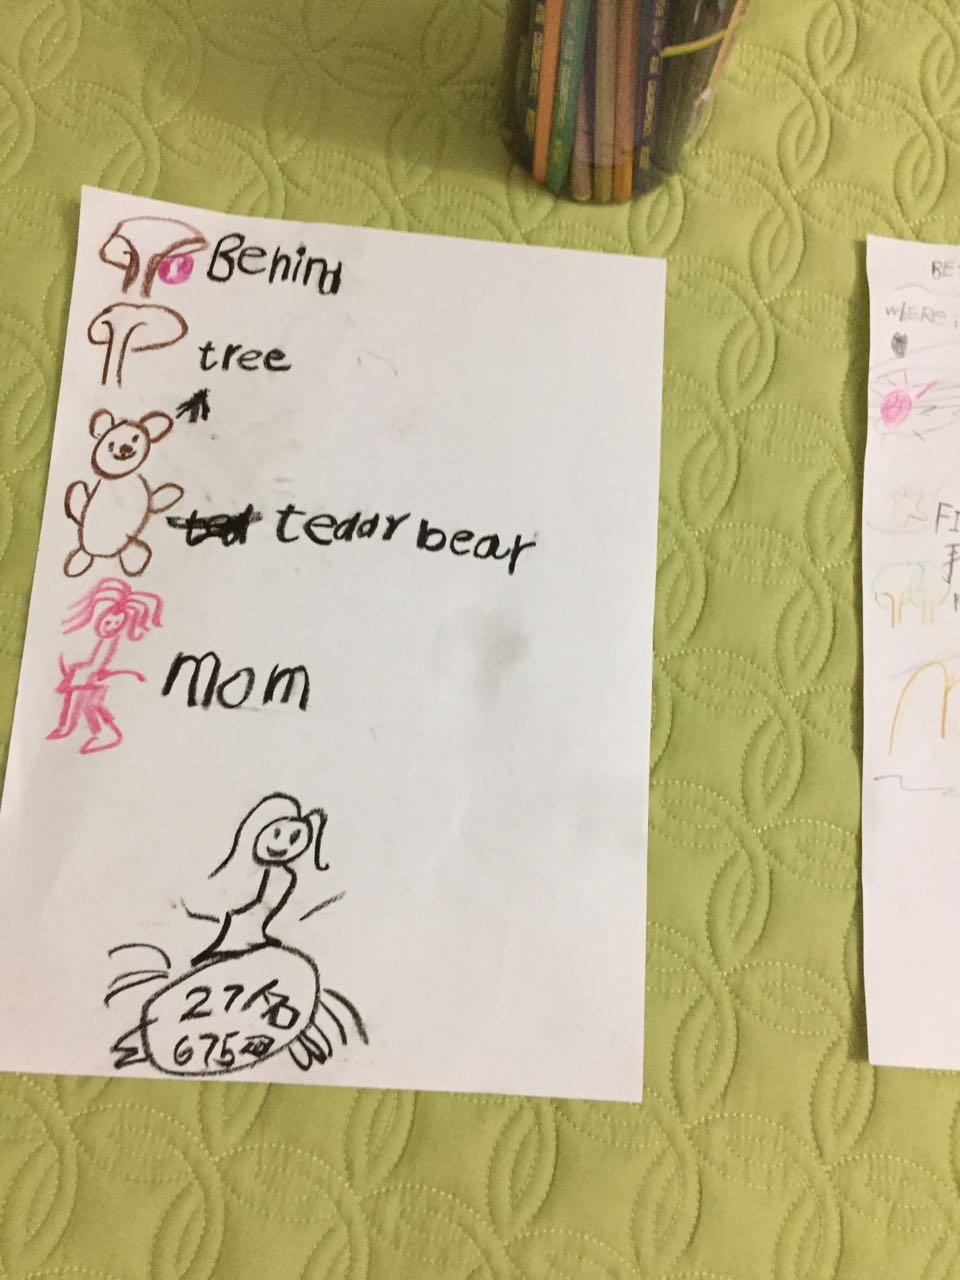 Behind
tree
teddy bear
mom
27个
675
BE
WHERE
FI